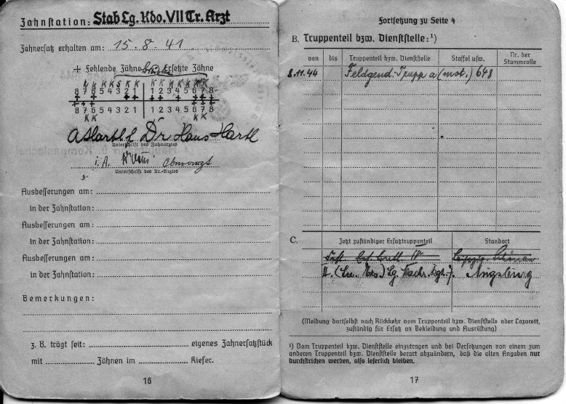 Zahnstation: Stab Lg. Kdo. VII Tr. Arzt
Zahnersatz erhalten am: 15.8.41
+ Fehlende Zähne ersetzte Zähne
8 7 6 5 4 3 2 1 1 2 3 4 5 6 7 8
8 7 6 5 4 3 2 1 1 2 3 4 5 6 7 8
K K K K
Dr Hans Hartl
Unterschrift des Zahnarztes
i. A.
Unterschrift des Tr.-Arztes
Ausbesserungen am:
in der Zahnstation:
Ausbesserungen am:
in der Zahnstation:
Ausbesserungen am:
in der Zahnstation:
Bemerkungen:
z. B. trägt seit: eigenes Zahnersatzstück
mit Zähnen im Kiefer.
16
Fortsetzung zu Seite 4
B. Truppenteil bzw. Dienststelle:¹)
von bis Truppenteil bzw. Dienststelle Staffel usw. Nr. der Stammrolle
8.11.44 Feldgend. Trupp a (mot.) 648
C. Jetzt zuständiger Ersatztruppenteil Standort
Leipzig
Lg. Nachr. Augsburg
(Meldung dortselbst nach Rückkehr vom Truppenteil bzw. Dienststelle oder Lazarett,
zuständig für Ersatz an Bekleidung und Ausrüstung)
¹) Vom Truppenteil bzw. Dienststelle einzutragen und bei Versetzungen von einem zum
anderen Truppenteil bzw. Dienststelle derart abzuändern, daß die alten Angaben nur
durchstrichen werden, also leserlich bleiben.
17